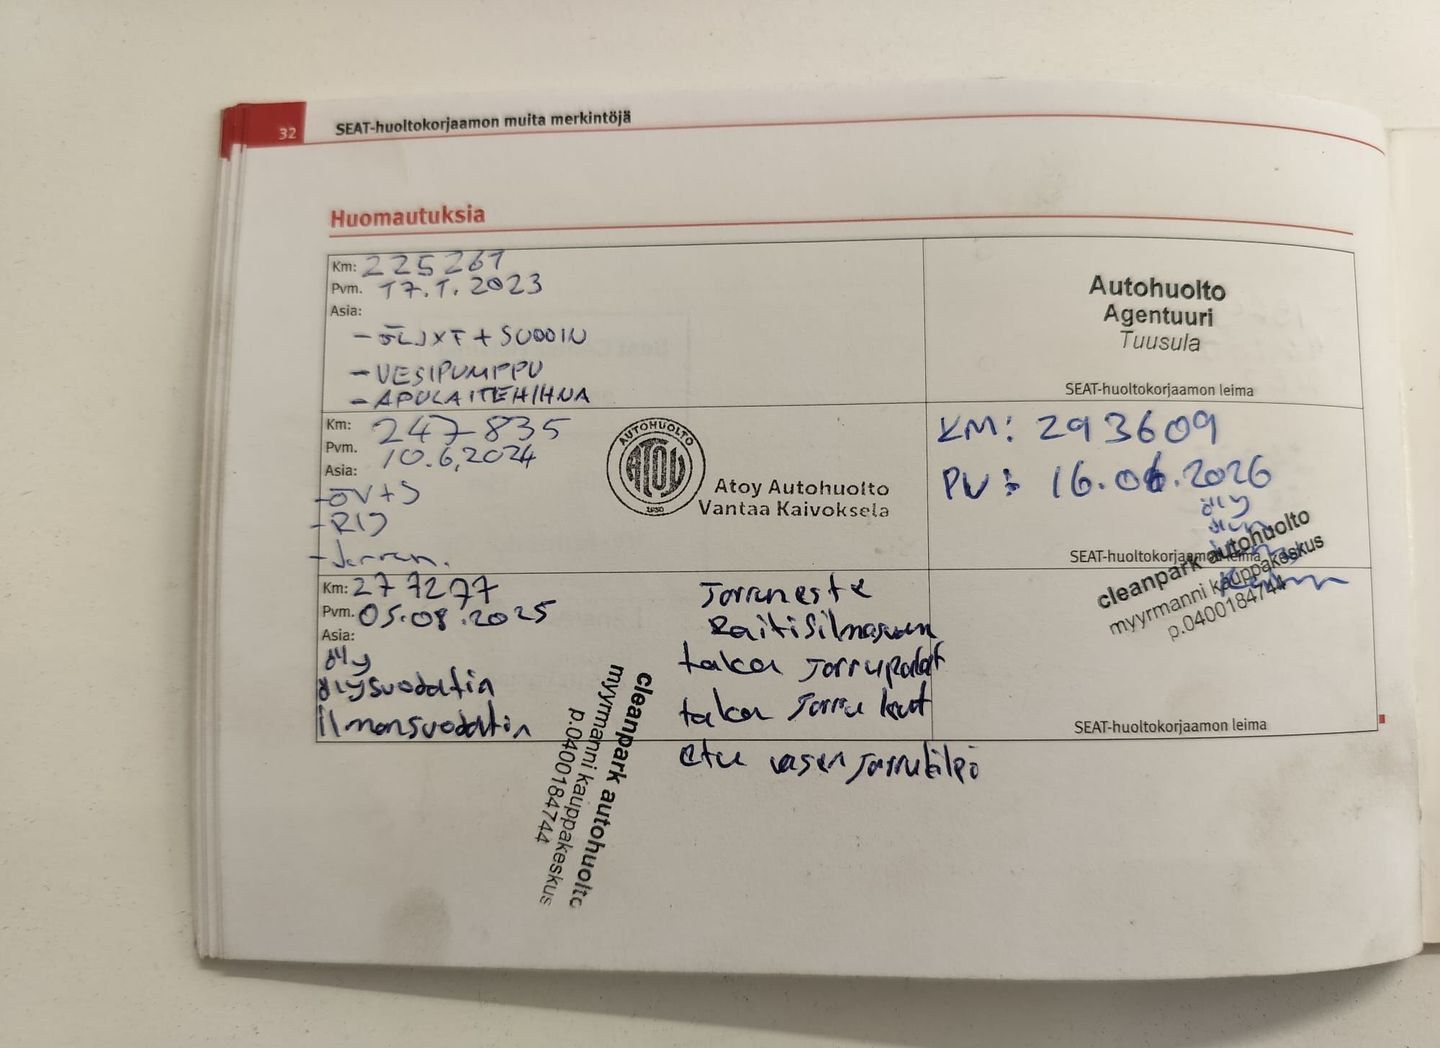 32
SEAT-huoltokorjaamon muita merkintöjä
Huomautuksia
Km: 225261
Pvm. 17.1.2023
Asia:
- ÖLJYT + SUODIN
- VESIPUMPPU
- APULAITEHIHNA
Autohuolto
Agentuuri
Tuusula
SEAT-huoltokorjaamon leima
Km: 247835
Pvm. 10.6.2024
Asia:
- ÖV+S
- RIJ
AUTOHUOLTO
ATOY
Atoy Autohuolto
Vantaa Kaivoksela
KM: 293609
PV: 16.06.2026
öljy
SEAT-huoltokorjaamon leima
cleanpark autohuolto
myyrmanni kauppakeskus
p.0400184744
Km: 277277
Pvm. 05.08.2025
Asia:
öljy
öljysuodatin
ilmansuodatin
Jarruneste
Raitisilmasuod
taka jarrupalat
taka jarru levyt
etu vasen jarrukilpi
cleanpark autohuolto
myyrmanni kauppakeskus
p.0400184744
SEAT-huoltokorjaamon leima